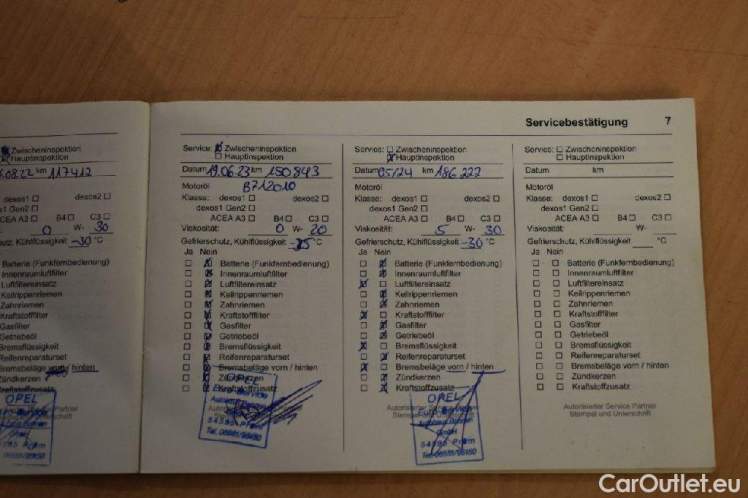 Servicebestätigung 7
Zwischeninspektion
Hauptinspektion
08.22 km 117412
dexos1 dexos2
dexos1 Gen2
ACEA A3 B4 C3
0 W- 30
schutz, Kühlflüssigkeit -30 °C
Batterie (Funkfernbedienung)
Innenraumluftfilter
Luftfiltereinsatz
Keilrippenriemen
Zahnriemen
Kraftstofffilter
Gasfilter
Getriebeöl
Bremsflüssigkeit
Reifenreparaturset
Bremsbeläge vorn / hinten
Zündkerzen
Kraftstoffzusatz
OPEL
Service: Zwischeninspektion
Hauptinspektion
Datum 19.06.23 km 150843
Motoröl B712010
Klasse: dexos1 dexos2
dexos1 Gen2
ACEA A3 B4 C3
Viskosität: 0 W- 20
Gefrierschutz, Kühlflüssigkeit -35 °C
Ja Nein
Batterie (Funkfernbedienung)
Innenraumluftfilter
Luftfiltereinsatz
Keilrippenriemen
Zahnriemen
Kraftstofffilter
Gasfilter
Getriebeöl
Bremsflüssigkeit
Reifenreparaturset
Bremsbeläge vorn / hinten
Zündkerzen
Kraftstoffzusatz
OPEL
54595 Prüm
Tel. 06551/95150
Service: Zwischeninspektion
Hauptinspektion
Datum 05/24 km 186222
Motoröl
Klasse: dexos1 dexos2
dexos1 Gen2
ACEA A3 B4 C3
Viskosität: 5 W- 30
Gefrierschutz, Kühlflüssigkeit -30 °C
Ja Nein
Batterie (Funkfernbedienung)
Innenraumluftfilter
Luftfiltereinsatz
Keilrippenriemen
Zahnriemen
Kraftstofffilter
Gasfilter
Getriebeöl
Bremsflüssigkeit
Reifenreparaturset
Bremsbeläge vorn / hinten
Zündkerzen
Kraftstoffzusatz
OPEL
GmbH
54595 Prüm
Tel. 06551/95150
Service: Zwischeninspektion
Hauptinspektion
Datum km
Motoröl
Klasse: dexos1 dexos2
dexos1 Gen2
ACEA A3 B4 C3
Viskosität: W-
Gefrierschutz, Kühlflüssigkeit °C
Ja Nein
Batterie (Funkfernbedienung)
Innenraumluftfilter
Luftfiltereinsatz
Keilrippenriemen
Zahnriemen
Kraftstofffilter
Gasfilter
Getriebeöl
Bremsflüssigkeit
Reifenreparaturset
Bremsbeläge vorn / hinten
Zündkerzen
Kraftstoffzusatz
Autorisierter Service Partner
Stempel und Unterschrift
CarOutlet.eu